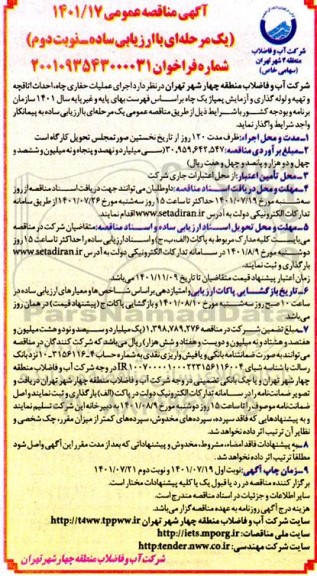 آگهی مناقصه عمومی ۱۴۰۱/۱۷
(یک مرحله‌ای با ارزیابی ساده_نوبت دوم)
شماره فراخوان ۲۰۰۱۰۹۳۵۴۳۰۰۰۰۳۱
شرکت آب و فاضلاب
منطقه ۴ شهر تهران
(سهامی خاص)
شرکت آب و فاضلاب منطقه چهار شهر تهران در نظر دارد اجرای عملیات حفاری چاه، احداث اتاقچه
و تهیه و لوله گذاری و آزمایش پمپاژ یک چاه بر اساس فهرست بهای پایه و غیرپایه سال ۱۴۰۱ سازمان
برنامه و بودجه کشور با شرایط ذیل از طریق مناقصه عمومی یک مرحله‌ای با ارزیابی ساده به پیمانکار
واجد شرایط واگذار نماید.
۱-مدت و محل اجراء: ظرف مدت ۱۲۰ روز از تاریخ نخستین صورتمجلس تحویل کارگاه است
۲-مبلغ برآوردی مناقصه: ۳۰,۹۵۹,۶۴۲,۵۴۷ (سی میلیارد و نهصد و پنجاه و نه میلیون و ششصد و
چهل و دو هزار و پانصد و چهل و هفت ریال)
۳-محل تأمین اعتبار: از محل اعتبارات جاری شرکت
۴-مهلت و محل دریافت اسناد مناقصه: داوطلبان می‌توانند جهت دریافت اسناد مناقصه از روز
سه‌شنبه مورخ ۱۴۰۱/۰۷/۱۹ حداکثر تا ساعت ۱۵ روز سه‌شنبه مورخ ۱۴۰۱/۰۷/۲۶ از طریق سامانه
تدارکات الکترونیکی دولت به آدرس www.setadiran.ir اقدام نمایند.
۵-مهلت و محل تحویل اسناد ارزیابی ساده و اسناد مناقصه: متقاضیان شرکت در مناقصه
می‌بایست کلیه مدارک مربوط به پاکات (الف، ب، ج) و اسناد ارزیابی ساده را حداکثر تا ساعت ۱۵ روز
دوشنبه مورخ ۱۴۰۱/۸/۹ در سامانه تدارکات الکترونیکی دولت به آدرس www.setadiran.ir
بارگذاری و ثبت نمایند.
زمان اعتبار پیشنهاد قیمت متقاضیان تا تاریخ ۱۴۰۱/۱۱/۰۹ می‌باشد
۶-تاریخ بازگشایی پاکات ارزیابی: و امتیازدهی بر اساس شاخص‌ها و معیارهای ارزیابی ساده در
ساعت ۱۰ صبح روز سه‌شنبه مورخ ۱۴۰۱/۰۸/۱۰ و بازگشایی پاکات ج (پیشنهاد قیمت) در همان روز
می‌باشد.
۷-مبلغ تضمین شرکت در مناقصه ۱,۳۹۸,۷۸۹,۲۷۶ (یک میلیارد و سیصد و نود و هشت میلیون و
هفتصد و هشتاد و نه میلیون و دویست و هفتاد و شش هزار) ریال می‌باشد که شرکت کنندگان در مناقصه
می‌توانند به صورت ضمانتنامه بانکی و یا فیش واریزی نقدی به شماره حساب
رسالت با شناسه شبای در وجه شرکت آب و فاضلاب منطقه
چهار شهر تهران و یا چک بانکی تضمینی در وجه شرکت آب و فاضلاب منطقه چهار شهر تهران دریافت و
تصویر ضمانتنامه را در سامانه تدارکات الکترونیک دولت در پاکت (الف) بارگذاری و ثبت نمایند و اصل
ضمانت‌نامه موصوف را تا ساعت ۱۵ روز دوشنبه مورخ ۱۴۰۱/۰۸/۹ به دبیرخانه این شرکت تسلیم نمایند
و به پیشنهادهایی که فاقد سپرده، سپرده‌های مخدوش، سپرده‌های کمتر از میزان مقرر، چک شخصی و
نظایر آن ترتیب اثر داده نخواهد شد.
۸-به پیشنهادات فاقد امضاء، مشروط، مخدوش و پیشنهاداتی که بعد از مدت مقرر این آگهی واصل شود
مطلقاً ترتیب اثر داده نخواهد شد.
۹-زمان چاپ آگهی: نوبت اول ۱۴۰۱/۰۷/۱۹ و نوبت دوم ۱۴۰۱/۰۷/۲۱
برگزار کننده مناقصه در رد یا قبول یک یا کلیه پیشنهادات مختار است.
سایر اطلاعات و جزئیات در اسناد مناقصه مندرج است.
هزینه درج آگهی روزنامه به عهده مناقصه‌گزار می‌باشد.
سایت شرکت آب و فاضلاب منطقه چهار شهر تهران http://t4ww.tppww.ir
سایت ملی مناقصات: http://iets.mporg.ir
سایت شرکت مهندسی: http:tender.nww.co.ir
شرکت آب و فاضلاب منطقه چهار شهر تهران